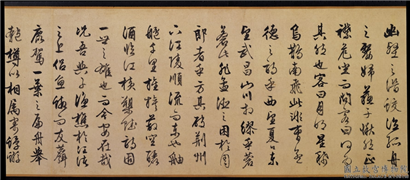 幽壑之潛蛟泣孤舟
之嫠婦蘇子愀然正
襟危坐而問客曰何為
其然也客曰月明星稀
烏鵲南飛此非曹孟
德之詩乎西望夏口東
望武昌山川相繆鬱乎
蒼蒼此非孟德之困於周
郎者乎方其破荊州
下江陵順流而東也舳
艫千里旌旗蔽空釃
酒臨江橫槊賦詩固
一世之雄也而今安在哉
況吾與子漁樵於江渚
之上侶魚蝦而友麋
鹿駕一葉之扁舟舉
匏樽以相屬寄蜉蝣
國立故宮博物院